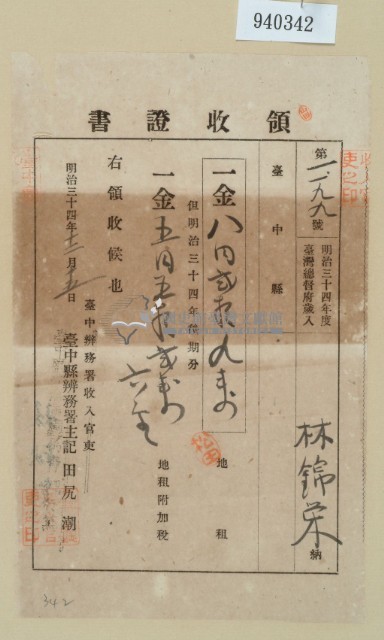 940342
領收證書
第一九九號
明治三十四年度
臺灣總督府歲入
林錦榮 納
臺中縣
一金八円弐拾九銭 地租
但明治三十四年後期分
一金五円五拾弐銭六厘 地租附加稅
右領收候也
明治三十四年十二月五日
臺中辨務署收入官吏
臺中縣辨務署主記 田尻潮
342